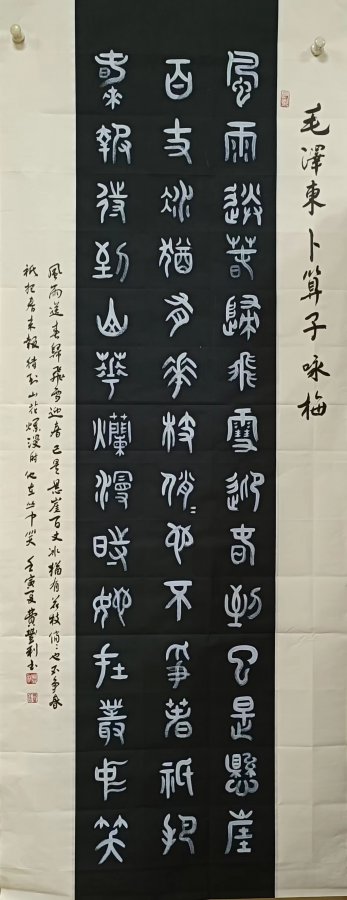 毛澤東卜算子咏梅
風雨送春歸飛雪迎春到已是懸崖
百丈冰猶有華枝俏〻也不爭春祇把
春來報待到山華爛漫時她在叢中笑
風雨送春歸飛雪迎春已是悬崖百丈冰猶有花枝俏〻也不争春
祇把春来報待到山花爛漫时他在丛中笑 壬寅夏費豐利书